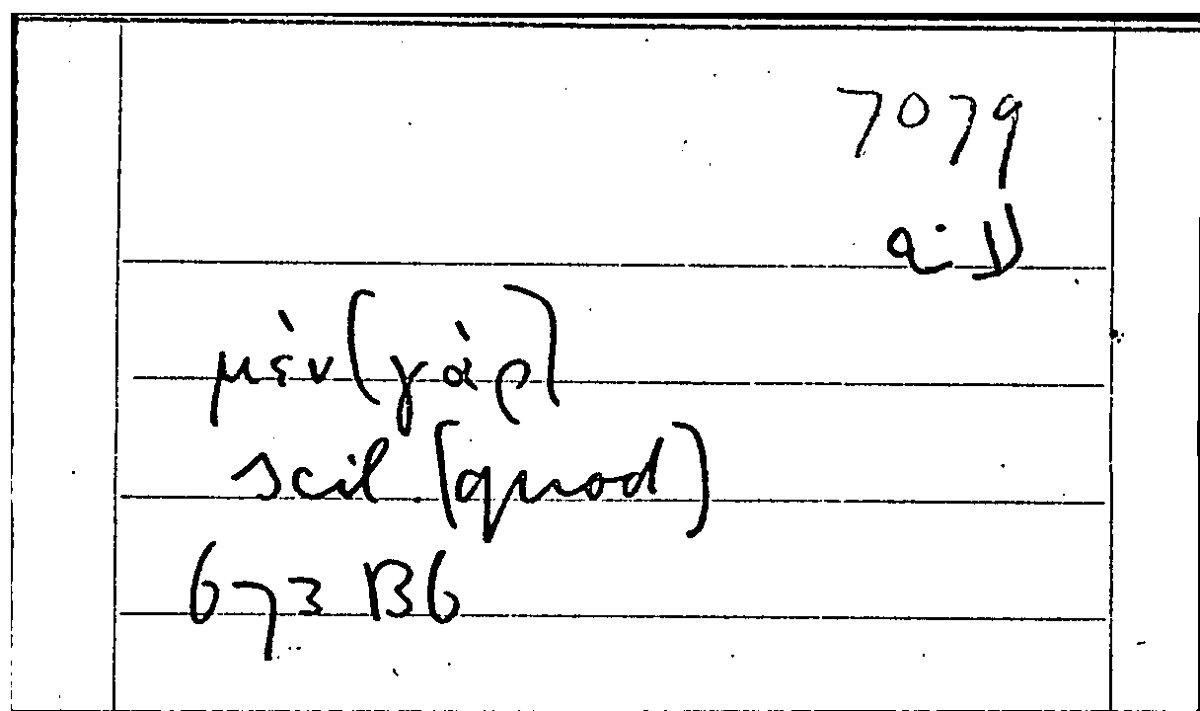 7079
a. D
μὲν (γὰρ)
scil. (quod)
673 B6